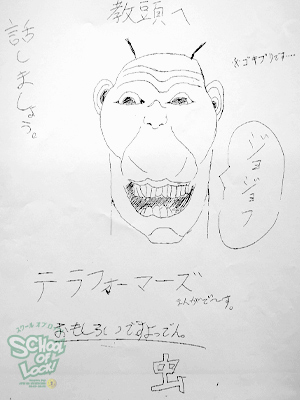 教頭へ
話しましょう。
※ゴキブリです…
ジョジョフ
テラフォーマーズ
まんがでーす。
おもしろいですよってん。
虫
スクールオブロック
SCHOOL
OF
LOCK!